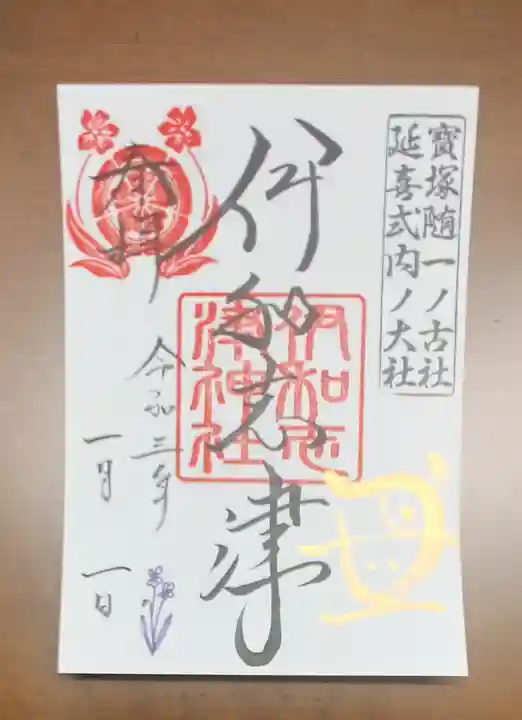 寶塚随一ノ古社
延喜式内ノ大社
伊和志津
伊和志
津神社
奉拝
令和三年
一月一日